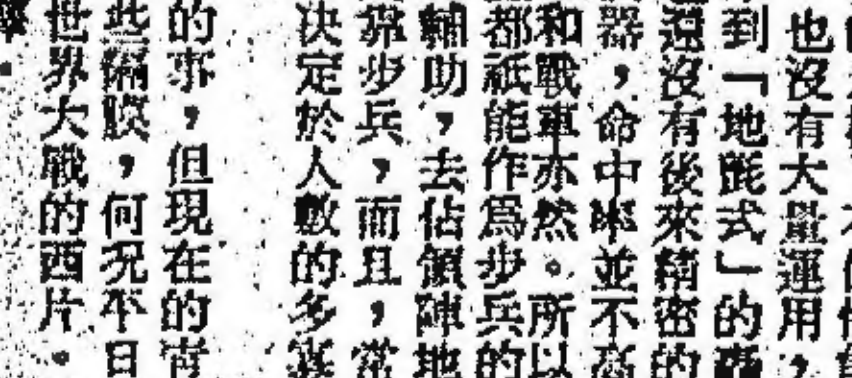 也沒有大量運用，
到「地氈式」的轟
還沒有後來精密的
器，命中率並不高
和戰車亦然。所以
都祇能作為步兵的
輔助，去佔領陣地
靠步兵，而且，常
決定於人數的多寡
的事，但現在的青
些隔膜，何況平日
世界大戰的西片。